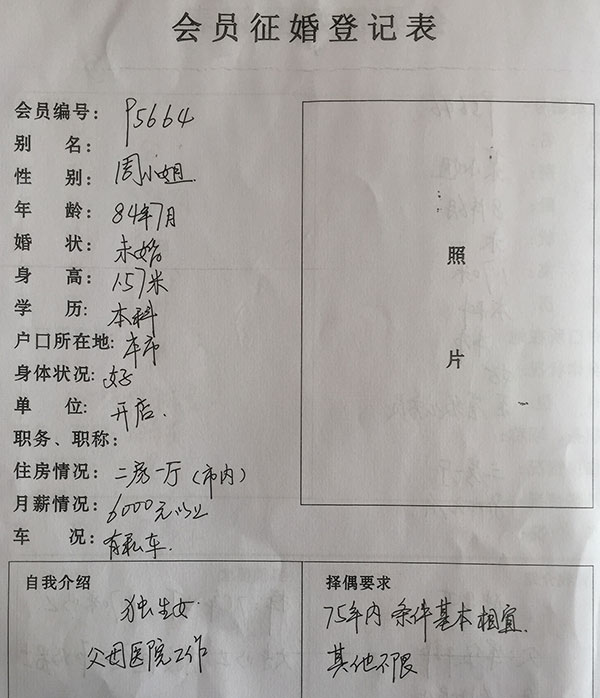 会员征婚登记表
会员编号: P5664
别 名:
性 别: 周小姐
年 龄: 84年7月
婚 状: 未婚
身 高: 1.57米
学 历: 本科
户口所在地: 本市
身体状况: 好
单 位: 开店.
职务、职称:
住房情况: 二房一厅(市内)
月薪情况: 6000元以上
车 况: 有私车.
照
片
自我介绍
独生女
父母医院工作
择偶要求
75年内 条件基本相宜.
其他不限